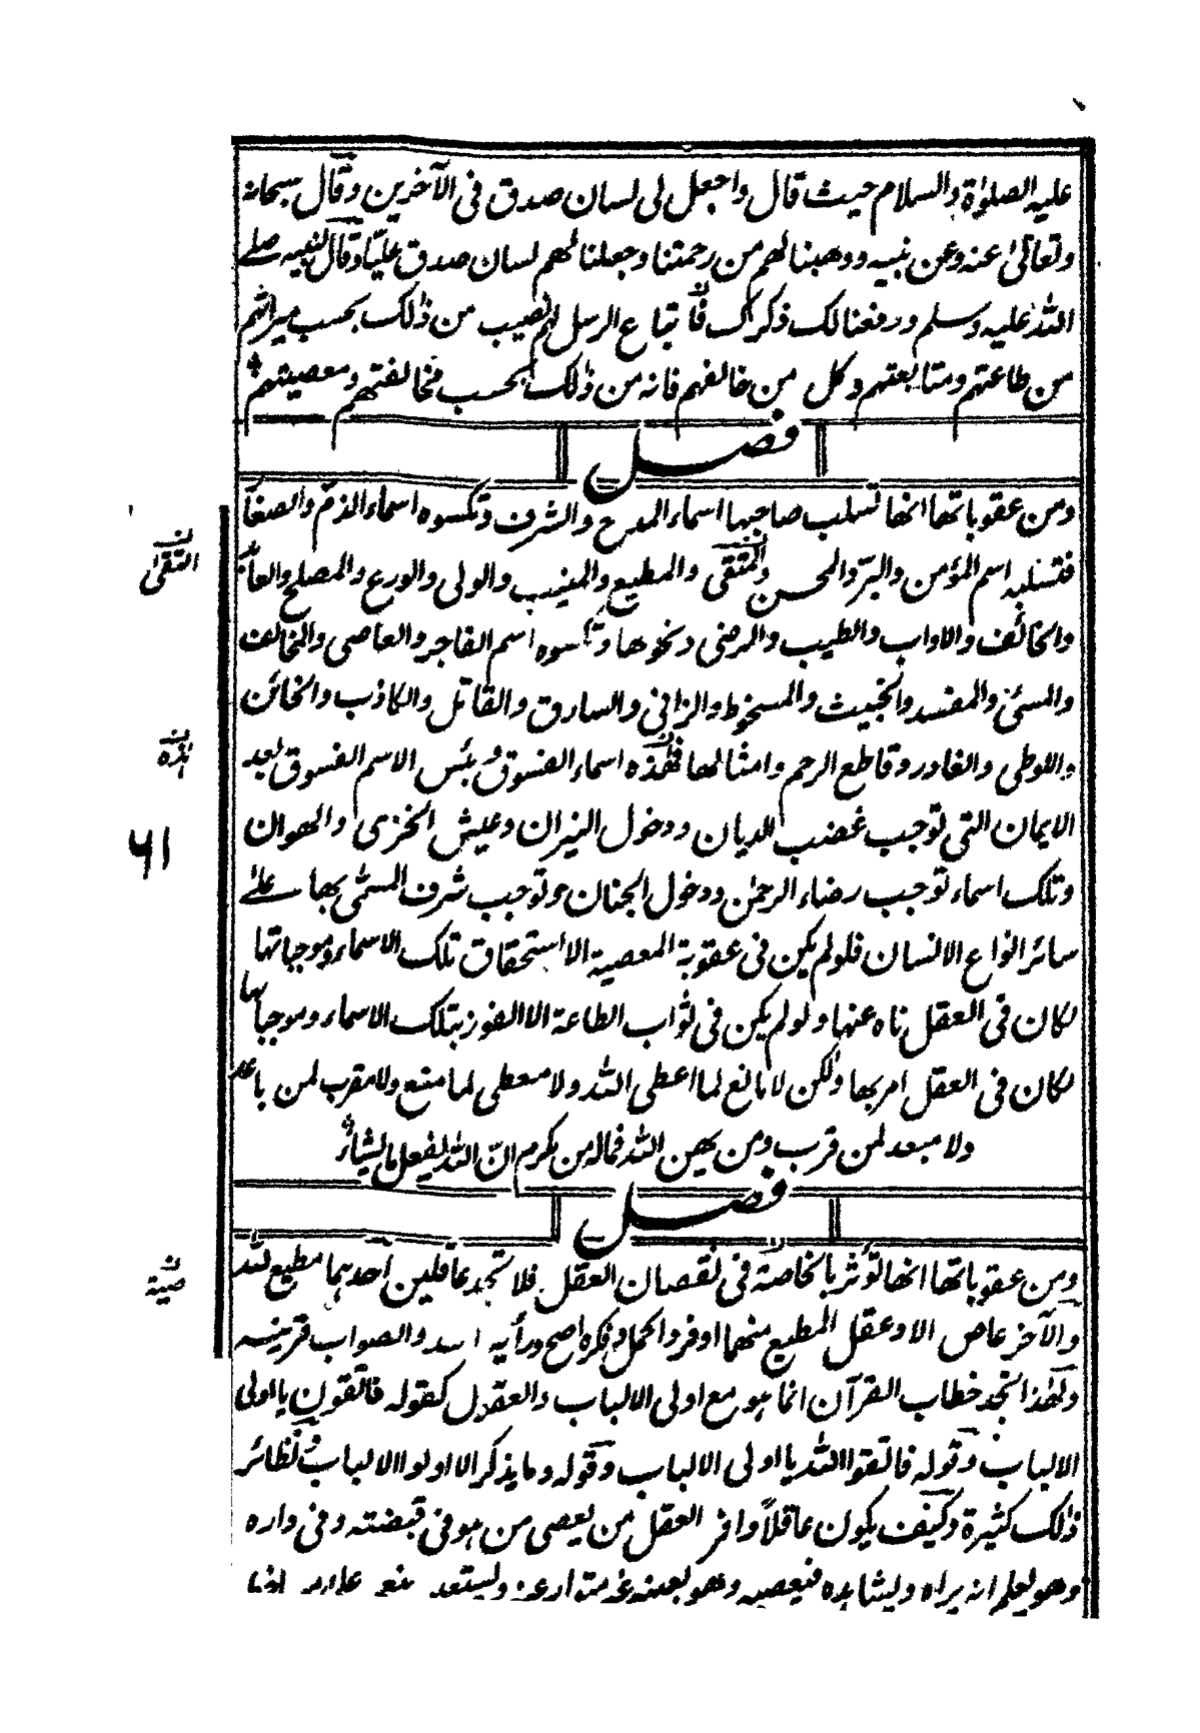 عليه الصلوٰة والسلام حيث قال واجعل لى لسان صدق فى الآخرين وقال سبحانه
وتعالىٰ عنه وعن بنيه ووهبنا لهم من رحمتنا وجعلنا لهم لسان صدق عليّا وقال لنبيه صلے
الله عليه وسلم ورفعنا لك ذكرك فاتباع الرسل لهم نصيب من ذٰلك بحسب ميراثهم
من طاعتهم ومتابعتهم وكل من خالفهم فانه من ذٰلك بحسب مخالفتهم ومعصيتهم
فصل
ومن عقوباتها انها تسلب صاحبها اسماء المدح والشرف وتكسوه اسماء الذم والصغار
فتسلبه اسم المؤمن والبرّ والمحسن والمتقى والمطيع والمنيب والولى والورع والمصلح والعابد
والخائف والاواب والطيب والرضى ونحوها وتكسوه اسم الفاجر والعاصى والمخالف
والمسئ والمفسد والخبيث والمسخوط والزانى والسارق والقاتل والكاذب والخائن
واللوطى والغادر وقاطع الرحم وامثالها فهٰذه اسماء الفسوق وبئس الاسم الفسوق بعد
الايمان التى توجب غضب الديان ودخول النيران وعيش الخزى والهوان
وتلك اسماء توجب رضاء الرحمٰن ودخول الجنان وتوجب شرف المسمّى بها علىٰ
سائر انواع الانسان فلو لم يكن فى عقوبة المعصية الا استحقاق تلك الاسماء وموجباتها
لكان فى العقل ناه عنها ولو لم يكن فى ثواب الطاعة الا الفوز بتلك الاسماء وموجباتها
لكان فى العقل امر بها ولكن لا مانع لما اعطى الله ولا معطى لما منع ولا مقرب لمن باعد
ولا مبعد لمن قرب ومن يهن الله فما له من مكرم انّ الله يفعل ما يشاء
فصل
ومن عقوباتها انها تؤثر بالخاصة فى نقصان العقل فلا تجد عاقلين احدهما مطيع لله
والآخر عاص الا وعقل المطيع منهما اوفر واكمل وفكره اصح ورأيه اسد والصواب قرينه
ولهٰذا تجد خطاب القرآن انما هو مع اولى الالباب والعقول كقوله فاتقون يا اولى
الالباب وقوله فاتقوا الله يا اولى الالباب وقوله وما يذكر الا اولوا الالباب ونظائر
ذٰلك كثيرة وكيف يكون عاقلاً وافر العقل من يعصى من هو فى قبضته وفى داره
وهو يعلم انه يراه ويشاهده فيعصيه وهو بعينه غير متوار عنه ويستعين
التقى
٦١